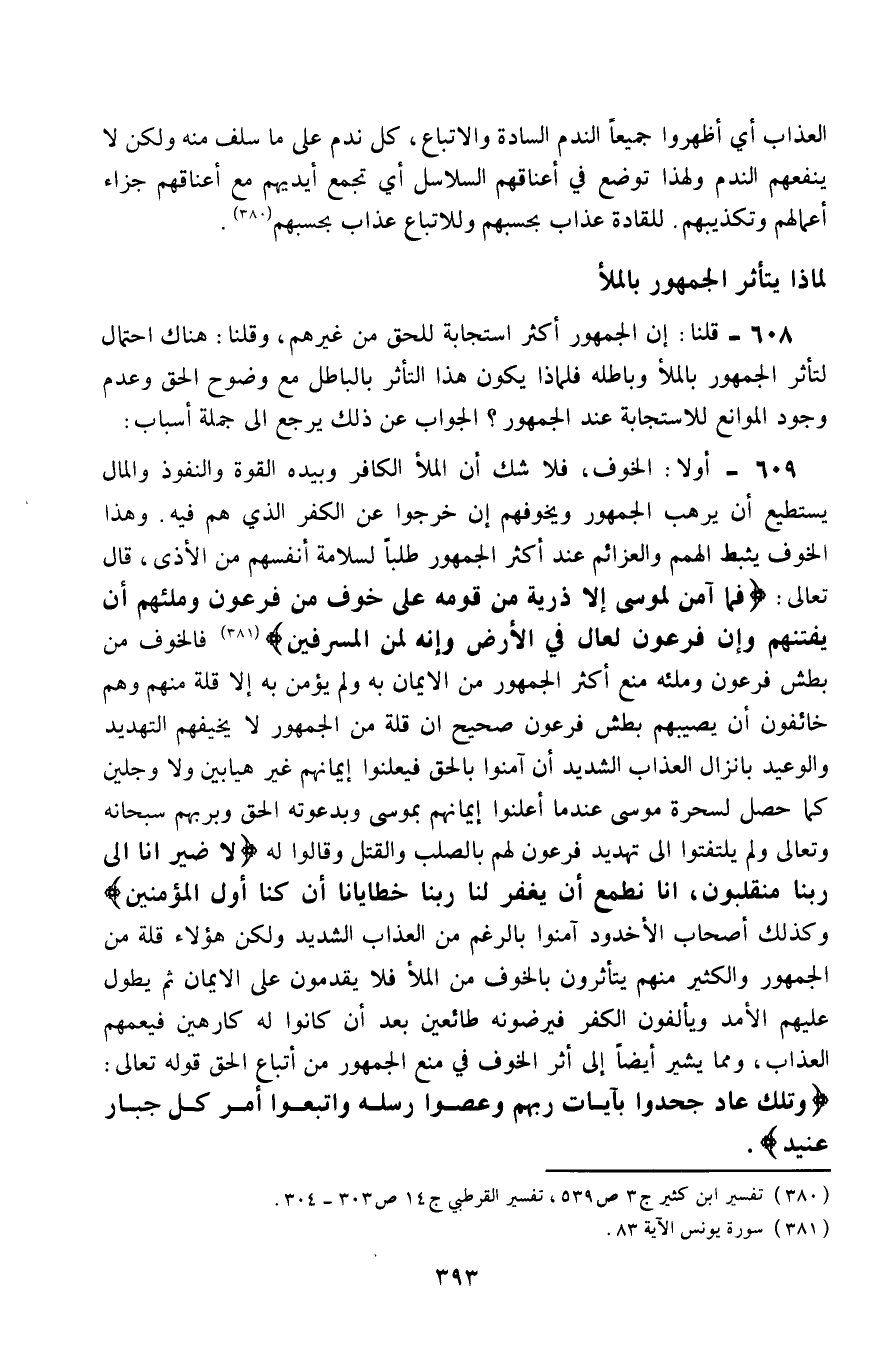 العذاب أي أظهروا جميعاً الندم السادة والاتباع، كل ندم على ما سلف منه ولكن لا
ينفعهم الندم ولهذا توضع في أعناقهم السلاسل أي تجمع أيديهم مع أعناقهم جزاء
أعمالهم وتكذيبهم. للقادة عذاب بحسبهم وللاتباع عذاب بحسبهم(٣٨٠) .
لماذا يتأثر الجمهور بالملأ
٦٠٨ - قلنا: إن الجمهور أكثر استجابة للحق من غيرهم، وقلنا: هناك احتمال
لتأثر الجمهور بالملأ وباطله فلماذا يكون هذا التأثر بالباطل مع وضوح الحق وعدم
وجود الموانع للاستجابة عند الجمهور؟ الجواب عن ذلك يرجع الى جملة أسباب:
٦٠٩ - أولا: الخوف، فلا شك أن الملأ الكافر وبيده القوة والنفوذ والمال
يستطيع أن يرهب الجمهور ويخوفهم إن خرجوا عن الكفر الذي هم فيه. وهذا
الخوف يثبط الهمم والعزائم عند أكثر الجمهور طلباً لسلامة أنفسهم من الأذى، قال
تعالى: ﴿فما آمن لموسى إلا ذرية من قومه على خوف من فرعون وملئهم أن
يفتنهم وإن فرعون لعال في الأرض وإنه لمن المسرفين﴾(٣٨١) فالخوف من
بطش فرعون وملئه منع أكثر الجمهور من الايمان به ولم يؤمن به إلا قلة منهم وهم
خائفون أن يصيبهم بطش فرعون صحيح ان قلة من الجمهور لا يخيفهم التهديد
والوعيد بانزال العذاب الشديد أن آمنوا بالحق فيعلنوا إيمانهم غير هيابين ولا وجلين
كما حصل لسحرة موسى عندما أعلنوا إيمانهم بموسى وبدعوته الحق وبربهم سبحانه
وتعالى ولم يلتفتوا الى تهديد فرعون لهم بالصلب والقتل وقالوا له ﴿لا ضير انا الى
ربنا منقلبون، انا نطمع أن يغفر لنا ربنا خطايانا أن كنا أول المؤمنين﴾
وكذلك أصحاب الأخدود آمنوا بالرغم من العذاب الشديد ولكن هؤلاء قلة من
الجمهور والكثير منهم يتأثرون بالخوف من الملأ فلا يقدمون على الايمان ثم يطول
عليهم الأمد ويألفون الكفر فيرضونه طائعين بعد أن كانوا له كارهين فيعمهم
العذاب، ومما يشير أيضاً إلى أثر الخوف في منع الجمهور من أتباع الحق قوله تعالى:
﴿وتلك عاد جحدوا بآيات ربهم وعصوا رسله واتبعوا أمر كل جبار
عنيد﴾ .
(٣٨٠) تفسير ابن كثير ج٣ ص٥٣٩، تفسير القرطبي ج١٤ ص٣٠٣ - ٣٠٤.
(٣٨١) سورة يونس الآية ٨٣.
٣٩٣